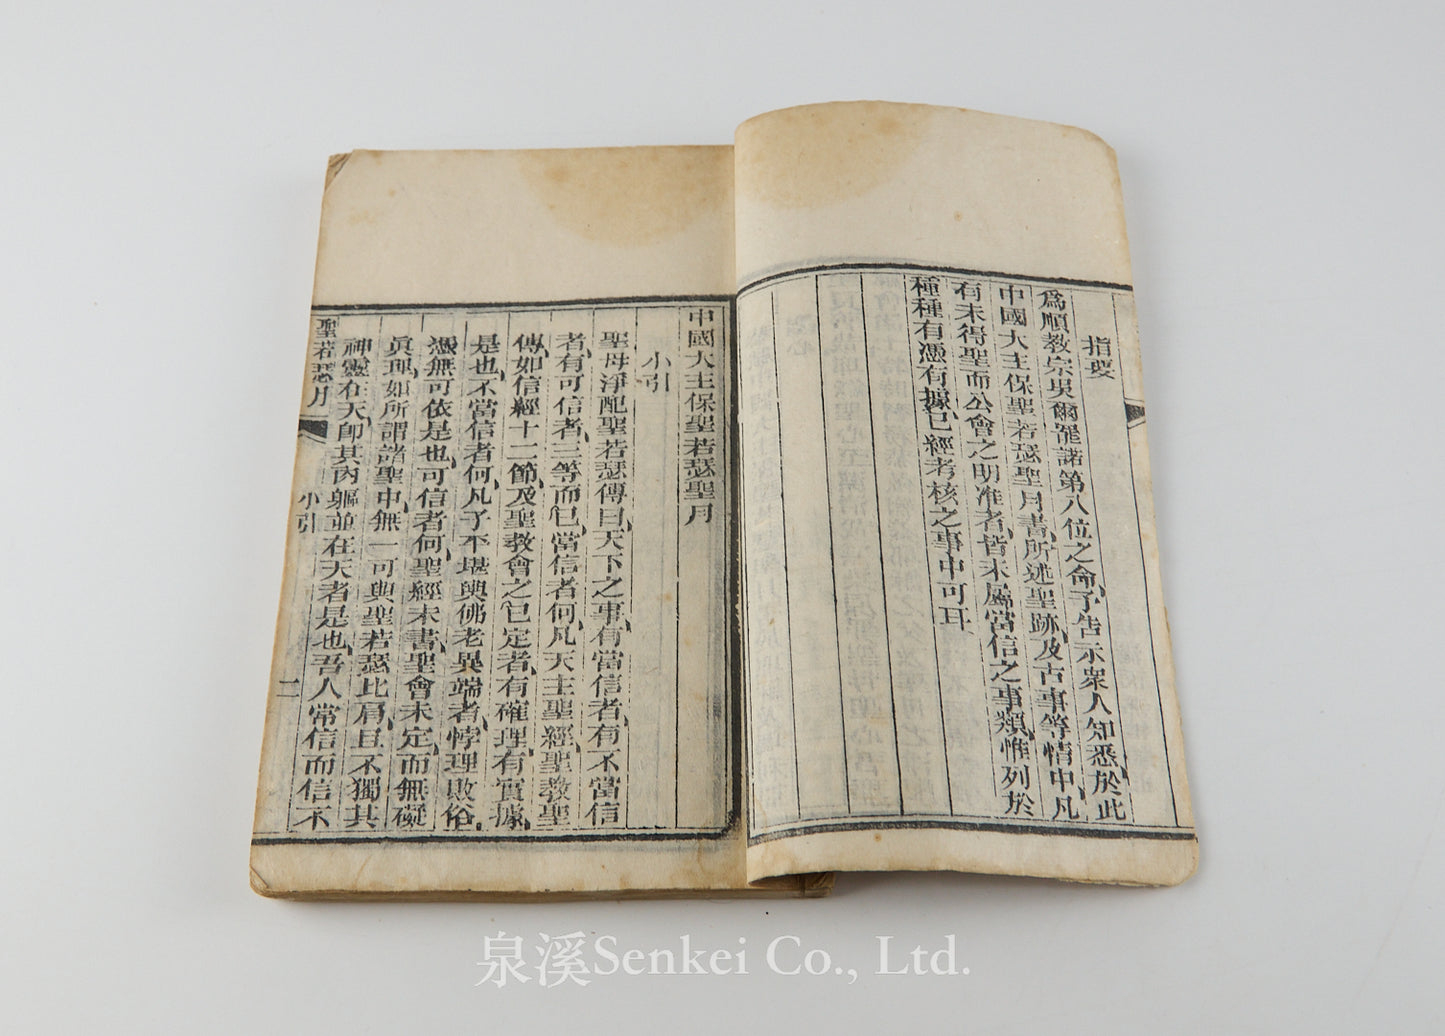 指要
爲順教宗吳爾罷諾第八位之命、予告示衆人知悉、於此
中國大主保聖若瑟聖月書、所述聖跡、及古事等情中、凡
有未得聖而公會之明准者、皆未屬當信之事類、惟列於
種種有憑有據、已經考核之事中可耳、
中國大主保聖若瑟聖月
小引
聖母淨配聖若瑟傳曰、天下之事、有當信者、有不當信
者、有可信者、三等而已、當信者何、凡天主聖經、聖教聖
傳、如信經十二節、及聖教會之已定者、有確理、有實據、
是也、不當信者何、凡子不堪與佛老異端者、悖理敗俗、
憑無可依是也、可信者何、聖經未書、聖會未定、而無礙
眞理、如所謂諸聖中、無一可與聖若瑟比肩、且不獨其
神靈在天、卽其肉軀並在天者是也、吾人常信而信不
聖若瑟月
小引
二
泉溪Senkei Co., Ltd.